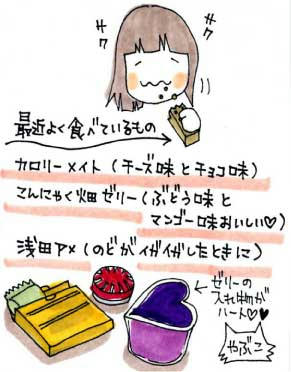 サク
サク
最近よく食べているもの
カロリーメイト(チーズ味とチョコ味)
こんにゃく畑ゼリー(ぶどう味と
マンゴー味おいしい♡)
浅田アメ(のどがイガイガしたときに)
←ゼリーの
入れ物が
ハート♡♥
やぶこ